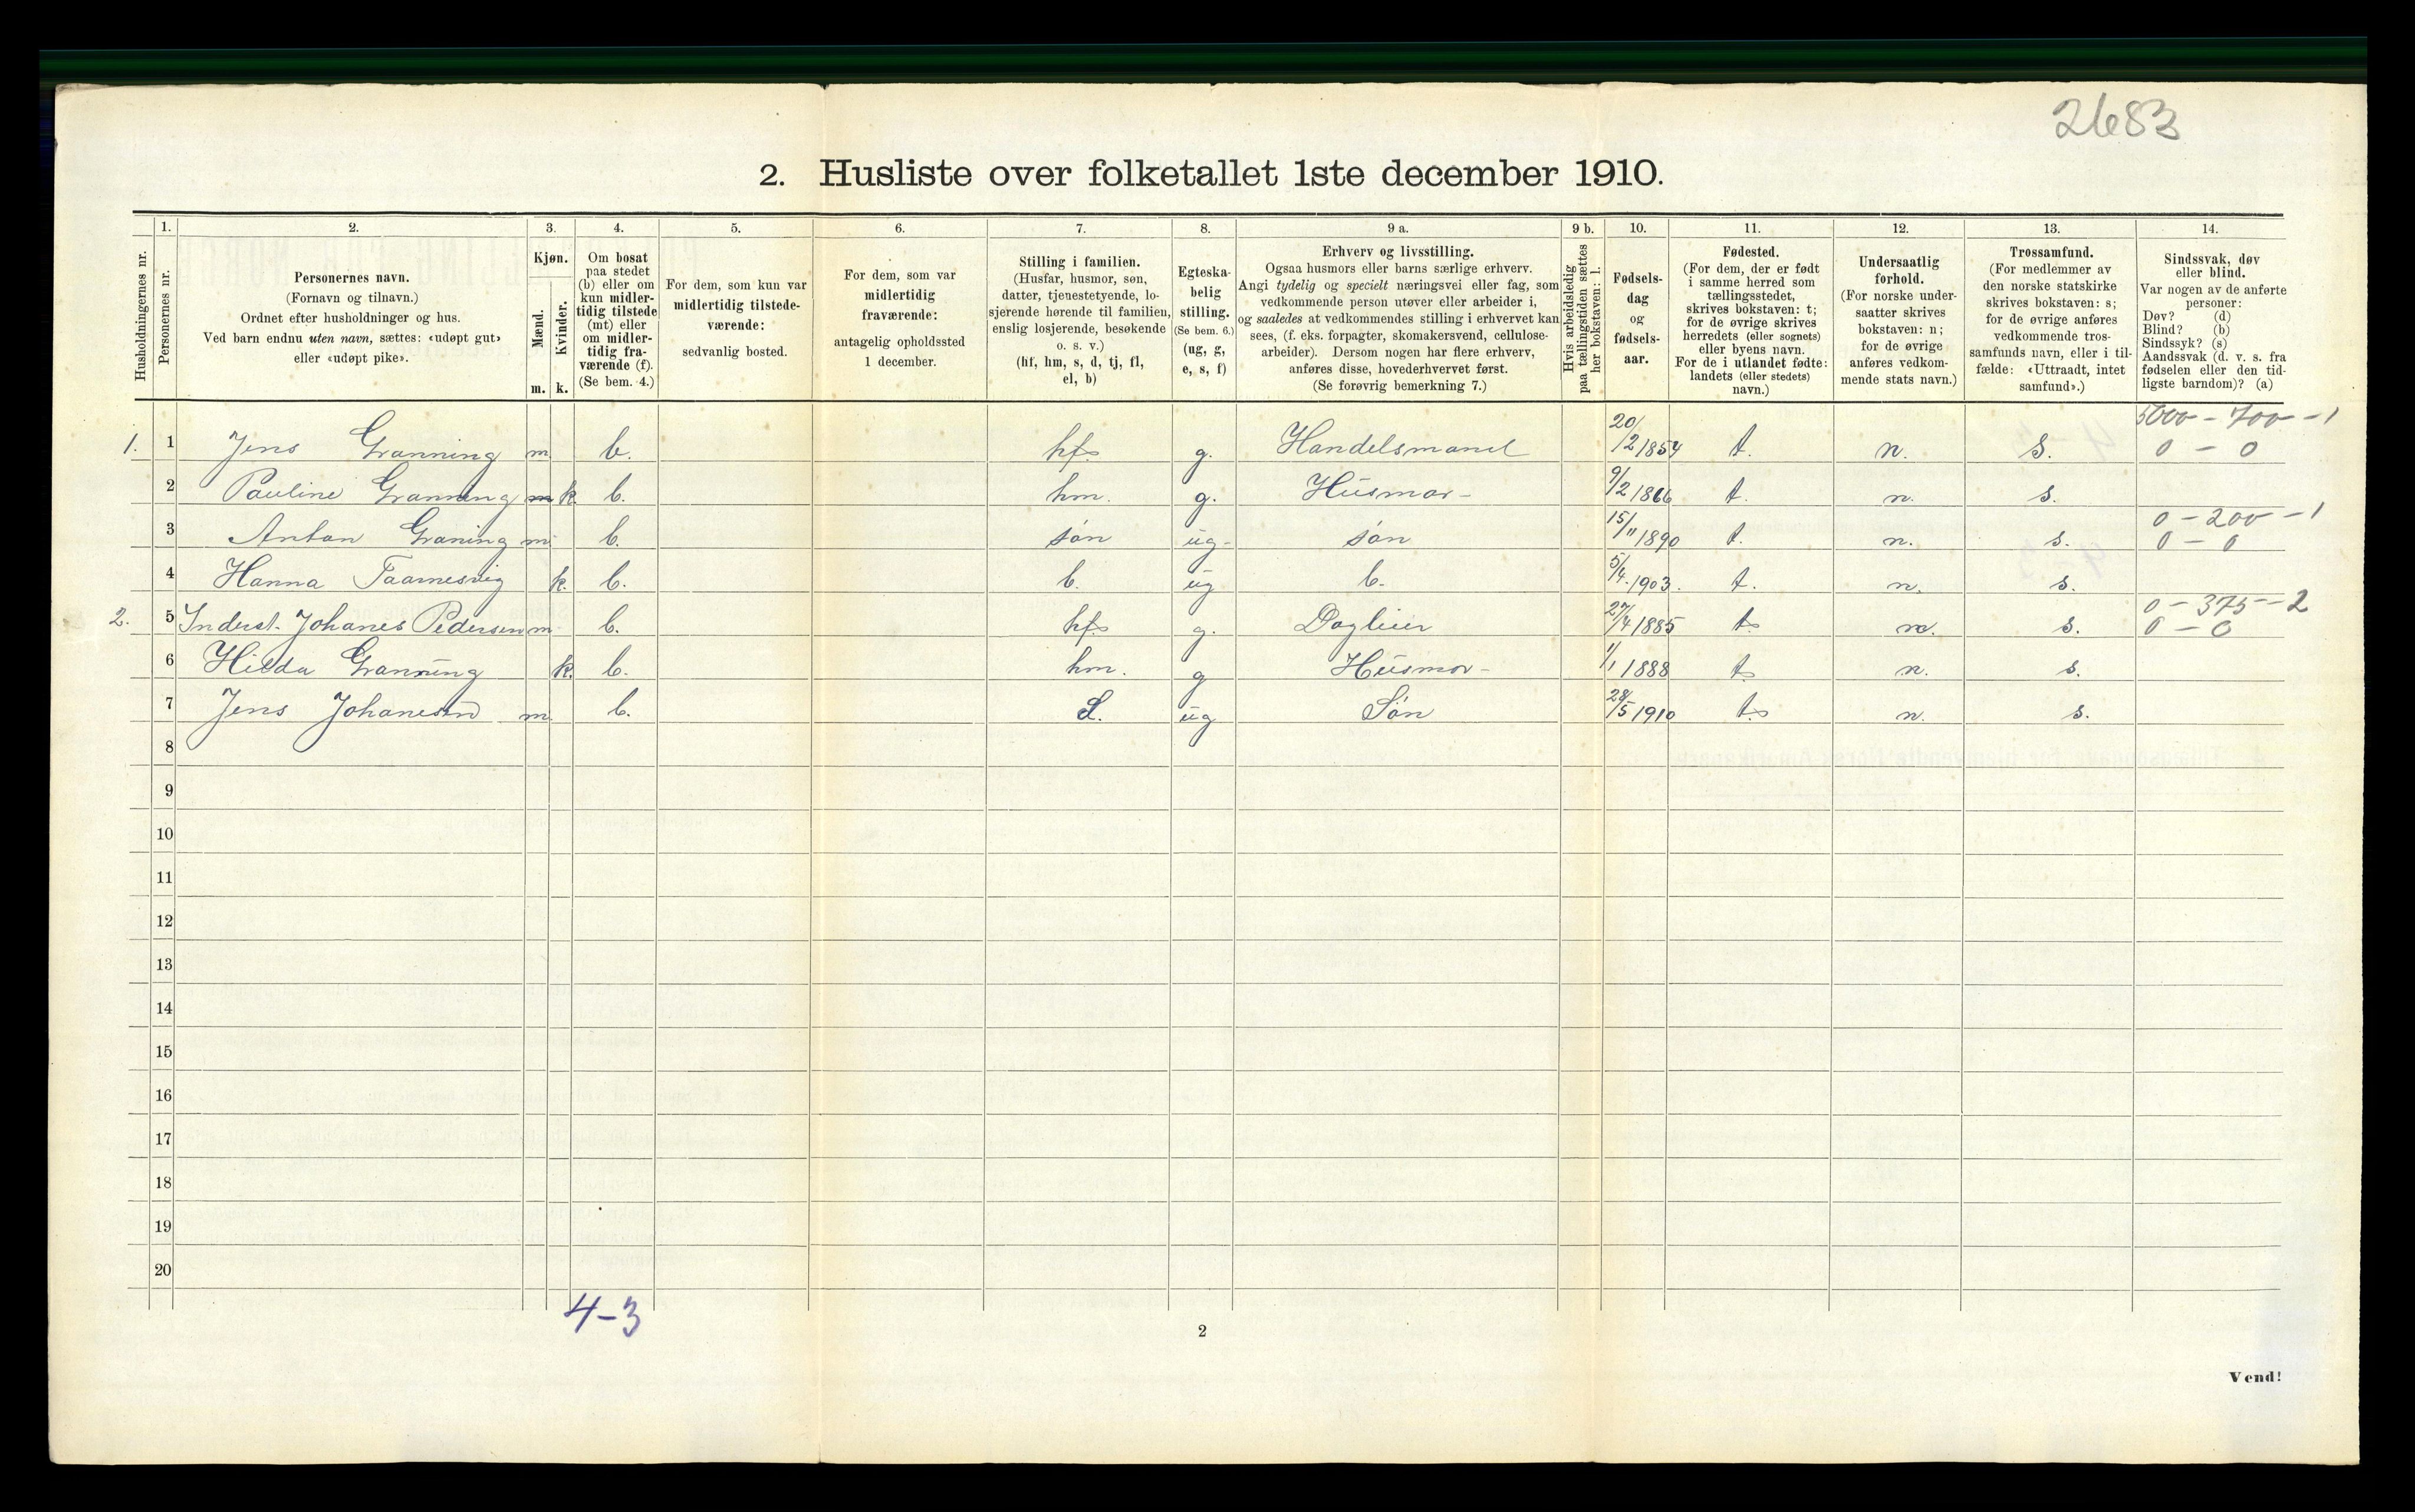 2683
2. Husliste over folketallet 1ste december 1910.
1. 2. 3. 4. 5. 6. 7. 8. 9 a. 9 b. 10. 11. 12. 13. 14.
Husholdningernes nr.
Personernes nr.
Personernes navn.
(Fornavn og tilnavn.)
Ordnet efter husholdninger og hus.
Ved barn endnu uten navn, sættes: «udøpt gut»
eller «udøpt pike».
Kjøn.
Mænd.
Kvinder.
m. k.
Om bosat
paa stedet
(b) eller om
kun midler-
tidig tilstede
(mt) eller
om midler-
tidig fra-
værende (f).
(Se bem. 4.)
For dem, som kun var
midlertidig tilstede-
værende:
sedvanlig bosted.
For dem, som var
midlertidig
fraværende:
antagelig opholdssted
1 december.
Stilling i familien.
(Husfar, husmor, søn,
datter, tjenestetyende, lo-
sjerende hørende til familien,
enslig losjerende, besøkende
o. s. v.)
(hf, hm, s, d, tj, fl,
el, b)
Egteska-
belig
stilling.
(Se bem. 6.)
(ug, g,
e, s, f)
Erhverv og livsstilling.
Ogsaa husmors eller barns særlige erhverv.
Angi tydelig og specielt næringsvei eller fag, som
vedkommende person utøver eller arbeider i,
og saaledes at vedkommendes stilling i erhvervet kan
sees, (f. eks. forpagter, skomakersvend, cellulose-
arbeider). Dersom nogen har flere erhverv,
anføres disse, hovederhvervet først.
(Se forøvrig bemerkning 7.)
Hvis arbeidsledig
paa tællingstiden sættes
her bokstaven: l.
Fødsels-
dag
og
fødsels-
aar.
Fødested.
(For dem, der er født
i samme herred som
tællingsstedet,
skrives bokstaven: t;
for de øvrige skrives
herredets (eller sognets)
eller byens navn.
For de i utlandet fødte:
landets (eller stedets)
navn.)
Undersaatlig
forhold.
(For norske under-
saatter skrives
bokstaven: n;
for de øvrige
anføres vedkom-
mende stats navn.)
Trossamfund.
(For medlemmer av
den norske statskirke
skrives bokstaven: s;
for de øvrige anføres
vedkommende tros-
samfunds navn, eller i til-
fælde: «Uttraadt, intet
samfund».)
Sindssvak, døv
eller blind.
Var nogen av de anførte
personer:
Døv? (d)
Blind? (b)
Sindssyk? (s)
Aandssvak (d. v. s. fra
fødselen eller den tid-
ligste barndom)? (a)
5000 - 700 - 1
1. 1 Jens Granning m b. hf. g. Handelsmand 20/2 1854 t. n. s. 0 - 0
2 Pauline Granning m k b. hm. g. Husmor- 9/2 1866 t. n. s.
0 - 200 - 1
3 Anton Graning m b. søn ug- søn 15/11 1890 t. n. s. 0 - 0
4 Hanna Taarnesvig k. b. b. ug b. 5/4 1903. t. n. s.
0 - 375 - 2
2. 5 Inderst. Johanes Pedersen m b. hf. g. Dagleier 27/4 1885 t. n. s. 0 - 0
6 Hilda Granning k. b. hm. g Husmor- 1/1 1888 t. n. s.
7 Jens Johanesen m. b. S. ug Søn 28/5 1910 t. n. s.
8
9
10
11
12
13
14
15
16
17
18
19
20
4-3
2
Vend!